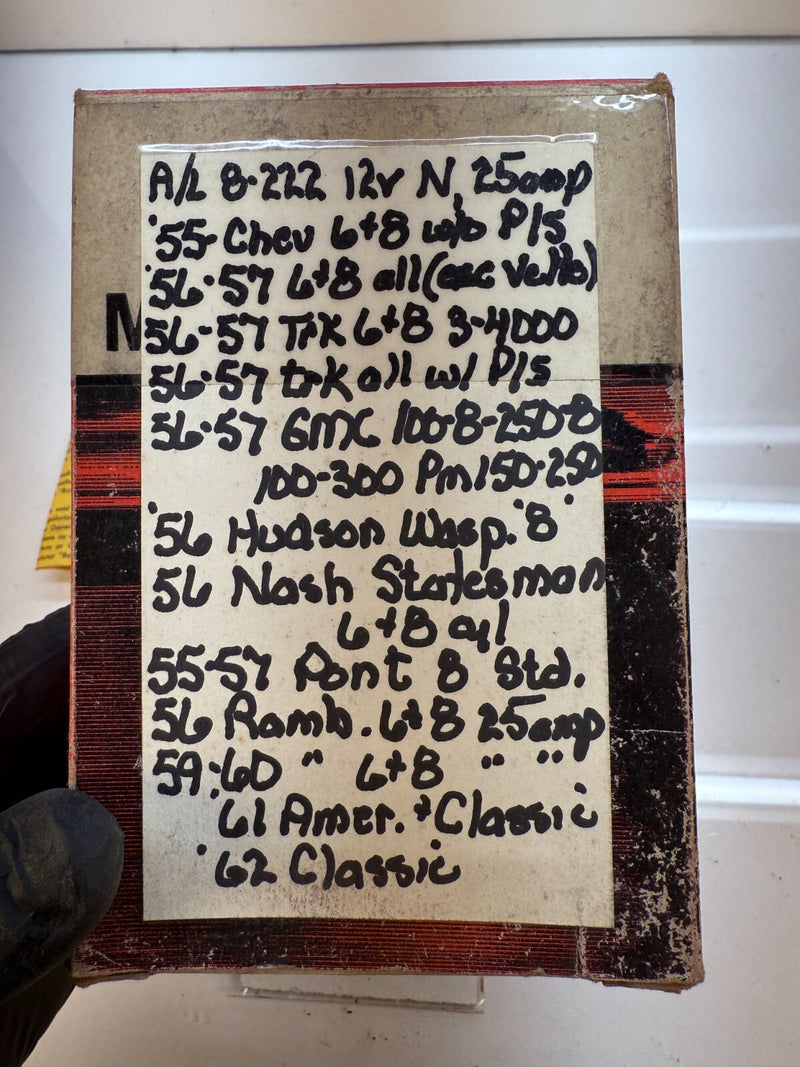 A/L 8-222 12v N, 25amp
'55- Chev 6+8 w/o P/s
'56-57 6+8 all (exc Vette)
56-57 Trk 6+8 3-4000
56-57 trk all w/ P/s
56-57 GMC 100-8-250-8
100-300 Pm150-250
'56 Hudson Wasp. '8'
56 Nash Statesman
6+8 cyl
55-57 Pont 8 Std.
56 Ramb. 6+8 25amp
59-60 " 6+8 " "
'61 Amer. + Classic
'62 Classic
M